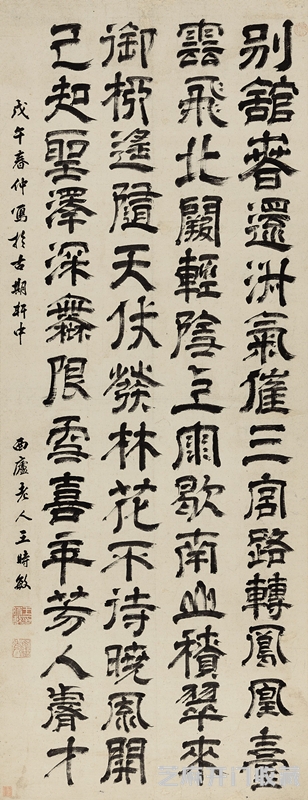 別館春還淑氣催三宮路轉鳳凰臺
雲飛北闕輕陰雨歇南山積翠來
御柳遙隨天仗發林花不待曉風開
已知聖澤深無限雪喜年芳入睿才
戊午春仲寫於古期軒中
西廬老人王時敏